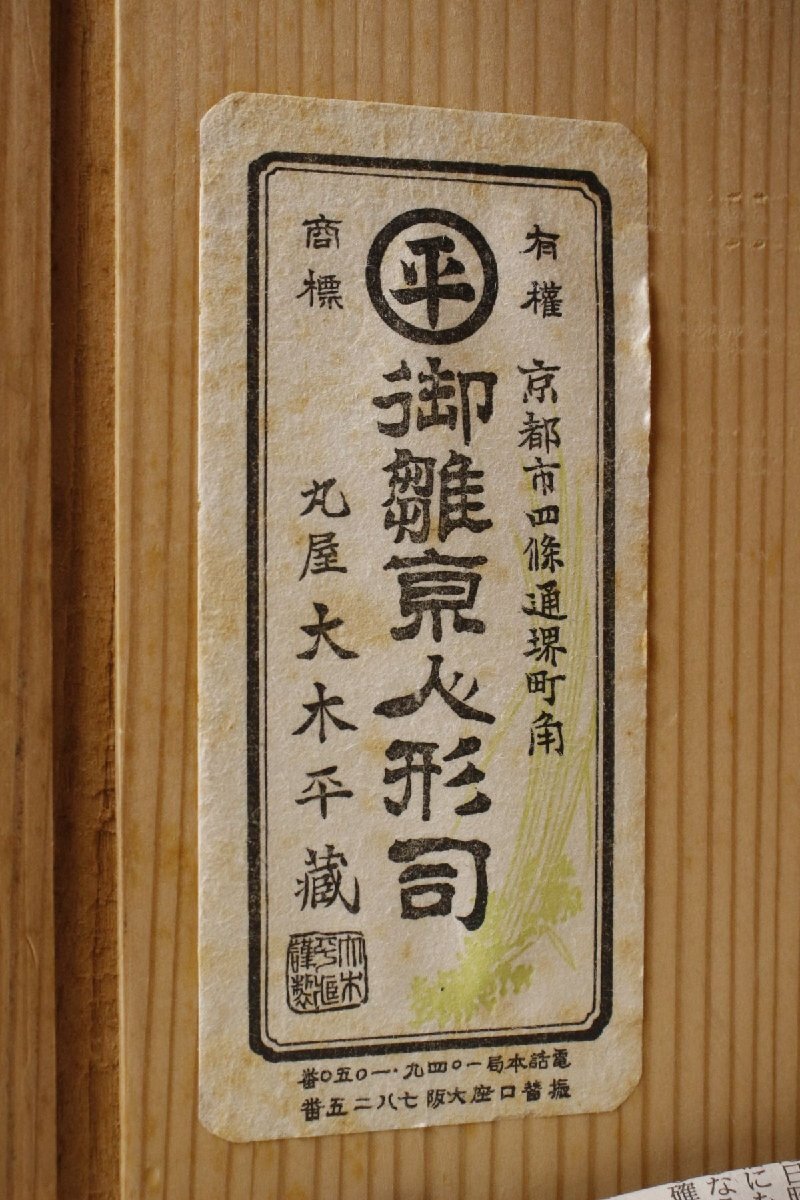 有權
京都市四條通堺町角
平
御雛京人形司
商標
丸屋 大木平藏
大木
謹製
電話本局一〇四九・一〇五〇番
振替口座大阪七八二五番